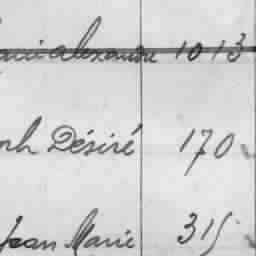 alexandre 1013
ph Désiré 170
Jean Marie 315